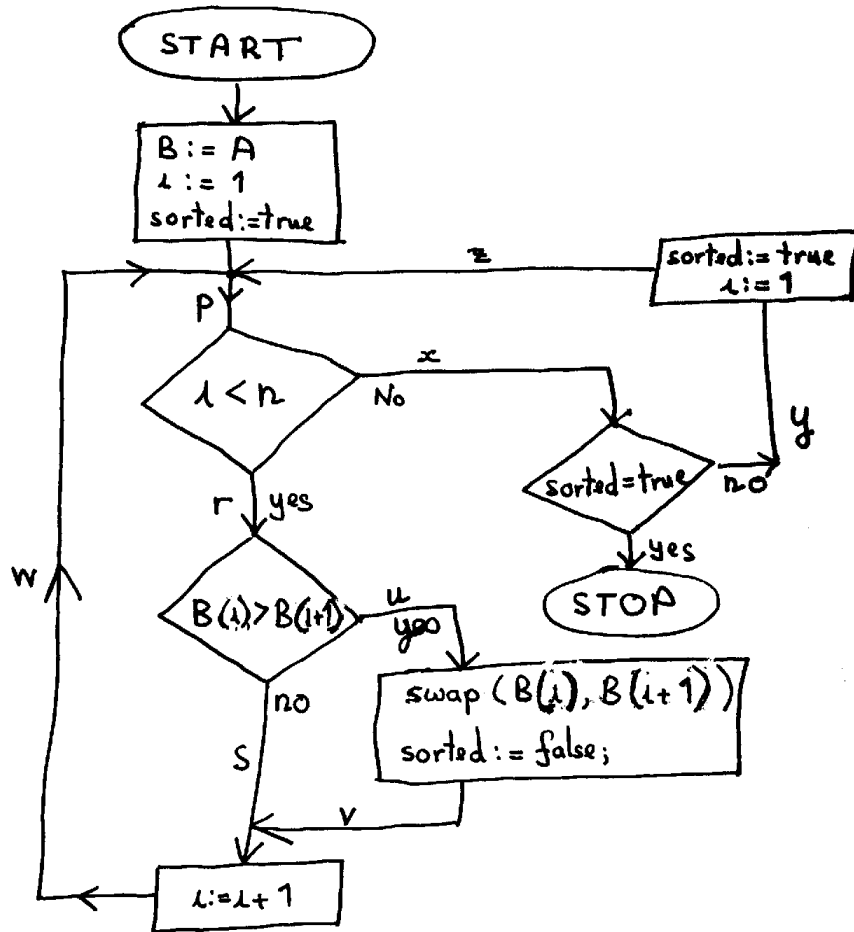 START
B := A
i := 1
sorted:=true
z
sorted:=true
i:=1
p
i < n
x
No
y
sorted=true
no
r
yes
yes
STOP
w
B(i)>B(i+1)
u
yes
no
swap (B(i), B(i+1))
sorted := false;
s
v
i:=i+1